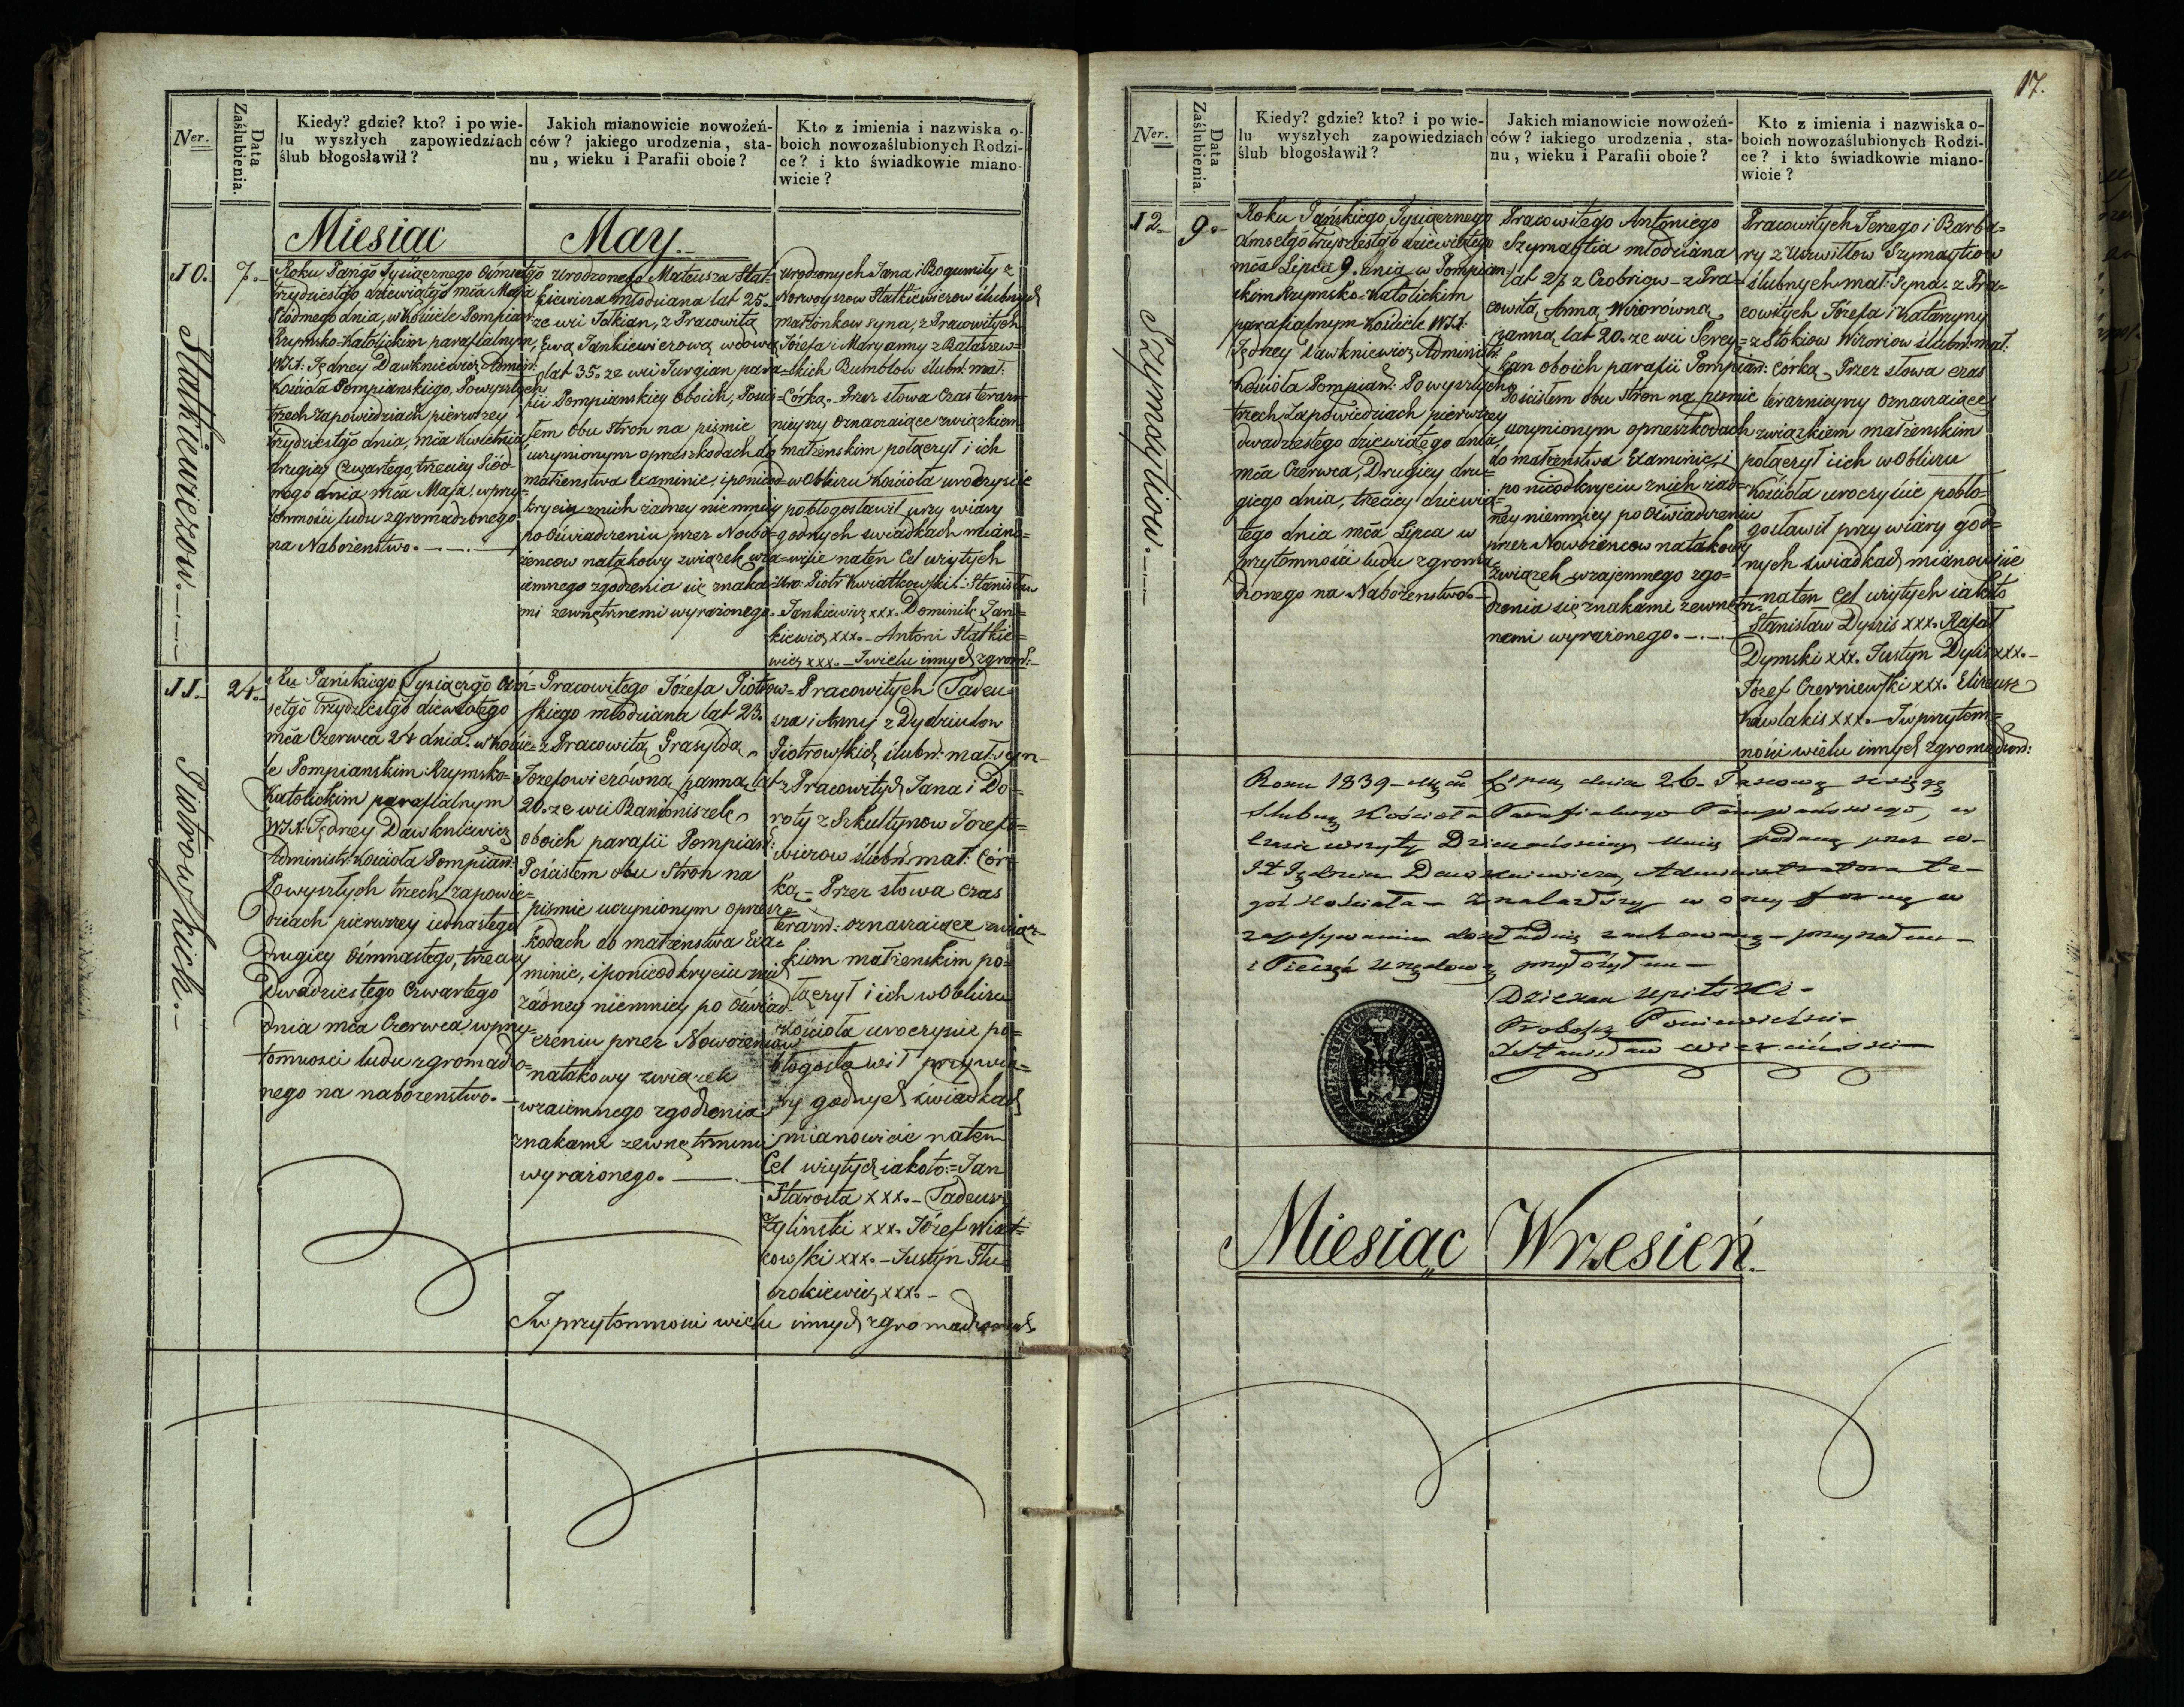 Ner.
Data
Zaślubienia.
Kiedy? gdzie? kto? i po wie-
lu wyszłych zapowiedziach
ślub błogosławił?
Jakich mianowicie nowożeń-
ców? jakiego urodzenia, sta-
nu, wieku i Parafii oboie?
Kto z imienia i nazwiska o-
boich nowozaślubionych Rodzi-
ce? i kto świadkowie miano-
wicie?
Miesiac May.
10.
7.
Statkiewiczow.
Roku Pańgo Tysiącznego Ośmsetgo
trzydziestgo dziewiątgo mca Maja
Siódmego dnia, w Kościele Pompiań:
Rzymsko-Katolickim parafialnym
WJX: Jędrzey Dawkniewicz Admin:
Kościoła Pompianskiego, Po wyszłych
trzech zapowiedziach pierwszey
trzydziestgo dnia, mca Kwietnia,
drugiey Czwartego, trzeciey Siód-
mego dnia mca Maja, w przy-
tomności ludu zgromadzonego
na Nabożenstwo.
Urodzonego Mateusza Stat-
kiewicza młodziana lat 25.
ze wsi Jotkian, z Pracowitą
Ewą Jankiewiczową wdową
lat 35. ze wsi Jurgian para-
fii Pompianskiey oboich, Poscis-
łem obu Stron na pismie
uczynionym o przeszkodach do
małżenstwa Examinie, i po nieod-
kryciu z nich żadney niemniey
po Oświadczeniu przez Nowo-
żencow na takowy związek wza-
iemnego zgodzenia się znaka-
mi zewnętrznemi wyrażonego.
Urodzonych Jana i Bogumiły z
Norwoyszow Statkiewiczow ślubnych
małżonkow syna, z Pracowitych
Józefa i Maryanny z Patarew-
skich Bumblow ślubn: mał:
Córką. Przez słowa czas teraz-
nieyszy oznaczaiące związkiem
małżenskim połączył i ich
w Obliczu Kościoła uroczyscie
pobłogosławił przy wiary
godnych świadkach miano-
wicie na ten Cel użytych
iako: Piotr Kwiatkowski. Stanisław
Jankiewicz xxx. Dominik Jan-
kiewicz xxx. Antoni Statkie-
wicz xxx. I wielu innych zgrom:
11.
24.
Piotrowskich.
Ru Pańskiego Tysiączgo Ośm-
setgo trzydziestgo dziewiątego
mca Czerwca 24 dnia. w Koście-
le Pompianskim Rzymsko-
Katolickim parafialnym
WJX: Jędrzey Dawkniewicz
Administr: Kościoła Pompian:
Po wyszłych trzech zapowie-
dziach pierwszey iednastego
Drugiey Ośmnastego, trzeciey
Dwadziestego Czwartego
dnia mca Czerwca w przy-
tomnosci ludu zgromadzo-
nego na nabożenstwo.
Pracowitego Józefa Piotrow-
skiego młodziana lat 23.
z Pracowitą Grasyldą
Jozefowiczówną panną lat
20. ze wsi Baniůniszek
oboich parafii Pompian:
Pościsłem obu Stron na
pismie uczynionym o przesz-
kodach do małżenstwa Exa-
minie, i po nieodkryciu z nich
żadney niemniey po Oświad-
czeniu przez Nowożencow
na takowy związek
wzaiemnego zgodzenia
znakami zewnętrznemi
wyrażonego.
Pracowitych Tadeu-
sza i Anny z Dydziulow
Piotrowskich ślubn: mał: syn
z Pracowitych Jana i Do-
roty z Szkultynow Jozefo-
wiczow ślubn: mał: Cór-
ką. Przez słowa czas
terazn: oznaczaiące związ-
kiem małżenskim po-
łączył i ich w Obliczu
Kościoła uroczyscie po-
błogosławił przy wia-
ry godnych świadkach
mianowicie na ten
Cel użytych iakoto: Jan
Starosta xxx. Tadeusz
Zgliński xxx. Józef Wiat-
kowski xxx. Justyn Stu-
rokiewicz xxx.
I w przytomności wielu innych zgromadzonych
17.
Ner.
Data
Zaślubienia.
Kiedy? gdzie? kto? i po wie-
lu wyszłych zapowiedziach
ślub błogosławił?
Jakich mianowicie nowożeń-
ców? iakiego urodzenia, sta-
nu, wieku i Parafii oboie?
Kto z imienia i nazwiska o-
boich nowozaślubionych Rodzi-
ce? i kto świadkowie miano-
wicie?
12.
9.
Szymaytiow.
Roku Pańskiego Tysiącznego
Ośmsetgo trzydziestgo dziewiątego
mca Lipca 9. dnia w Pompian-
skim Rzymsko-Katolickim
parafialnym Kościele WJX:
Jędrzey Dawkniewicz Administr:
Kościoła Pompian: Po wyszłych
trzech Zapowiedziach pierwszey
dwadziestego dziewiątego dnia,
mca Czerwca, Drugiey dru-
giego dnia, trzeciey dziewią-
tego dnia mca Lipca w
przytomności ludu zgroma-
dzonego na Nabożenstwo.
Pracowitego Antoniego
Szymaytia młodziana
lat 23 z Czobriow z Pra-
cowitą Anną Wizorówną,
panną, lat 20. ze wsi Serey-
kan oboich parafii Pompian:
Pościsłem obu Stron na pismie
uczynionym o przeszkodach
do małżenstwa Examinie, i
po nieodkryciu z nich żad-
ney niemniey po Oświadczeniu
przez Nowożencow na takowy
związek wzajemnego zgo-
dzenia się znakami zewnętrz-
nemi wyrażonego.
Pracowitych Jerzego i Barba-
ry z Uszwiłłow Szymaytiow
ślubnych mał: Syna, z Pra-
cowitych Józefa i Katarzyny
z Stokiow Wizoriow ślubn: mał:
Córką. Przez słowa czas
teraznieyszy oznaczaiące
związkiem małżenskim
połączył i ich w Obliczu
Kościoła uroczyście pobło-
gosławił przy wiary god-
nych świadkach mianowicie
na ten Cel użytych iakoto
Stanisław Dyszis xxx. Rafał
Dymski xxx. Justyn Dylis xxx.
Józef Czerniewski xxx. Elizeusz
Kawlakis xxx. I w przytom-
ności wielu innych zgromadzon:
Roku 1839 Mca Lipca dnia 26. Takową xsięgę
Slubną Kościoła Parafialnego Pompiańskiego, w
czasie wizyty Dziekańskiey mnie podaną przez W
JX Jędrzeia Dawkniewicza, Administratora te-
goż Kościoła znalazłszy w oney formę w
zapisywaniu dokładnie zachowaną przyznałem
i Pieczęć urzędową przyłożyłem
Dziekan Upitski
Proboszcz Poniewieżski
Miesiąc Wrzesień.